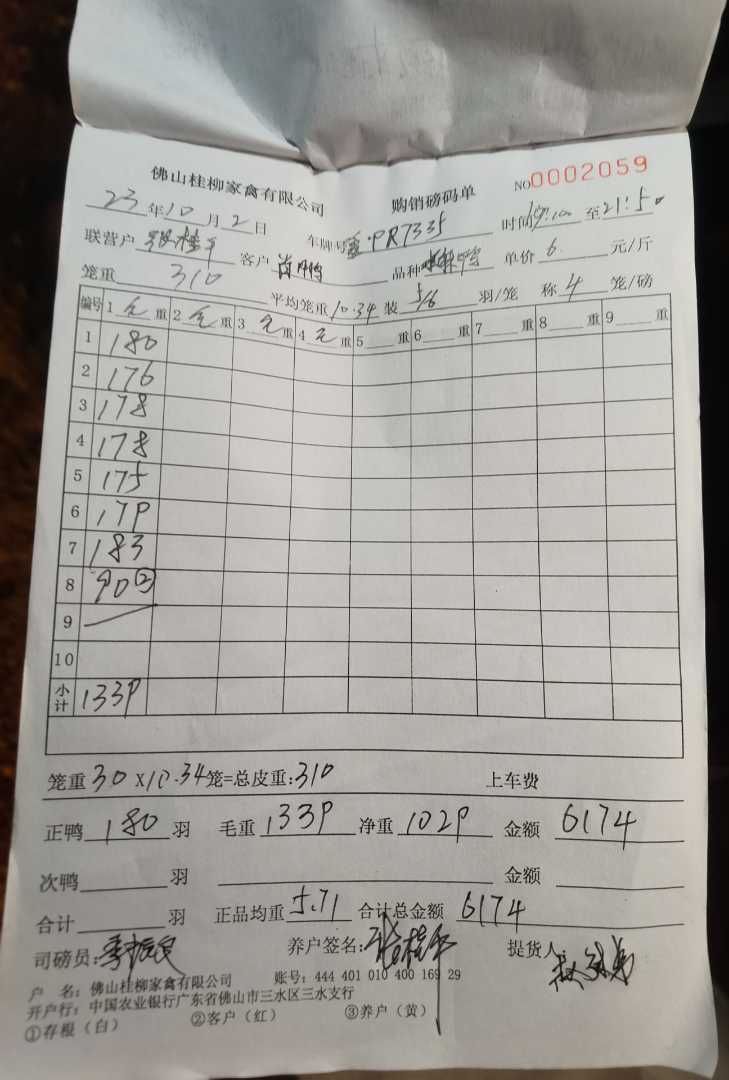 佛山桂柳家禽有限公司 购销磅码单 NO0002059
23年10月2日 车牌号 PR7335 时间 至21:50
联营户 客户 品种 单价6.元/斤
笼重310 平均笼重10.34 装5/6羽/笼 称4笼/磅
编号 1 毛重 2 毛重 3 毛重 4 毛重 5 重 6 重 7 重 8 重 9 重
1 180
2 176
3 178
4 178
5 175
6 179
7 183
8 90②
9
10
小计 1339
笼重30X10.34笼=总皮重:310 上车费
正鸭180羽 毛重1339 净重1029 金额6174
次鸭 羽 金额
合计 羽 正品均重5.71 合计总金额6174
司磅员: 养户签名: 提货人:
户 名:佛山桂柳家禽有限公司 账号:444 401 010 400 169 29
开户行:中国农业银行广东省佛山市三水区三水支行
①存根(白) ②客户(红) ③养户(黄)